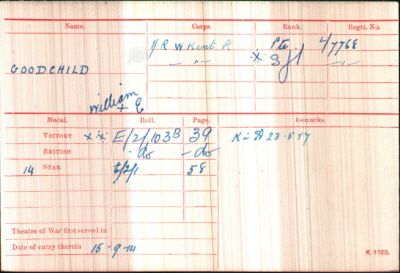 Name. Corps. Rank. Regtl. No.
R W Kent R. Pte L/7768
GOODCHILD — " — x Sjt — " —
William
x E
Medal. Roll. Page. Remarks.
VICTORY x x E/2/103B 39 K in A 23-5-17
BRITISH - do - do
14 STAR E/2/1 58
Theatre of War first served in
Date of entry therein 15-9-14
K. 1380.